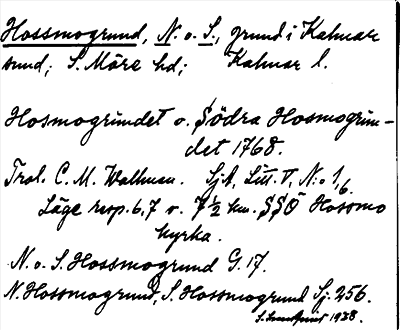 Hossmogrund, N. o. S., grund i Kalmar
sund; S. Möre hd; Kalmar l.
Hosmogrundet o. Södra Hosmogrun-
det 1768.
Trol. C. M. Wallman. Sjk, Litt. V, N:o 1/6.
Läge resp. 6,7 o. 7 1/2 km. SSÖ Hossmo
kyrka.
N. o. S. Hossmogrund G. 17.
N. Hossmogrund, S. Hossmogrund Sj. 256.
1938.